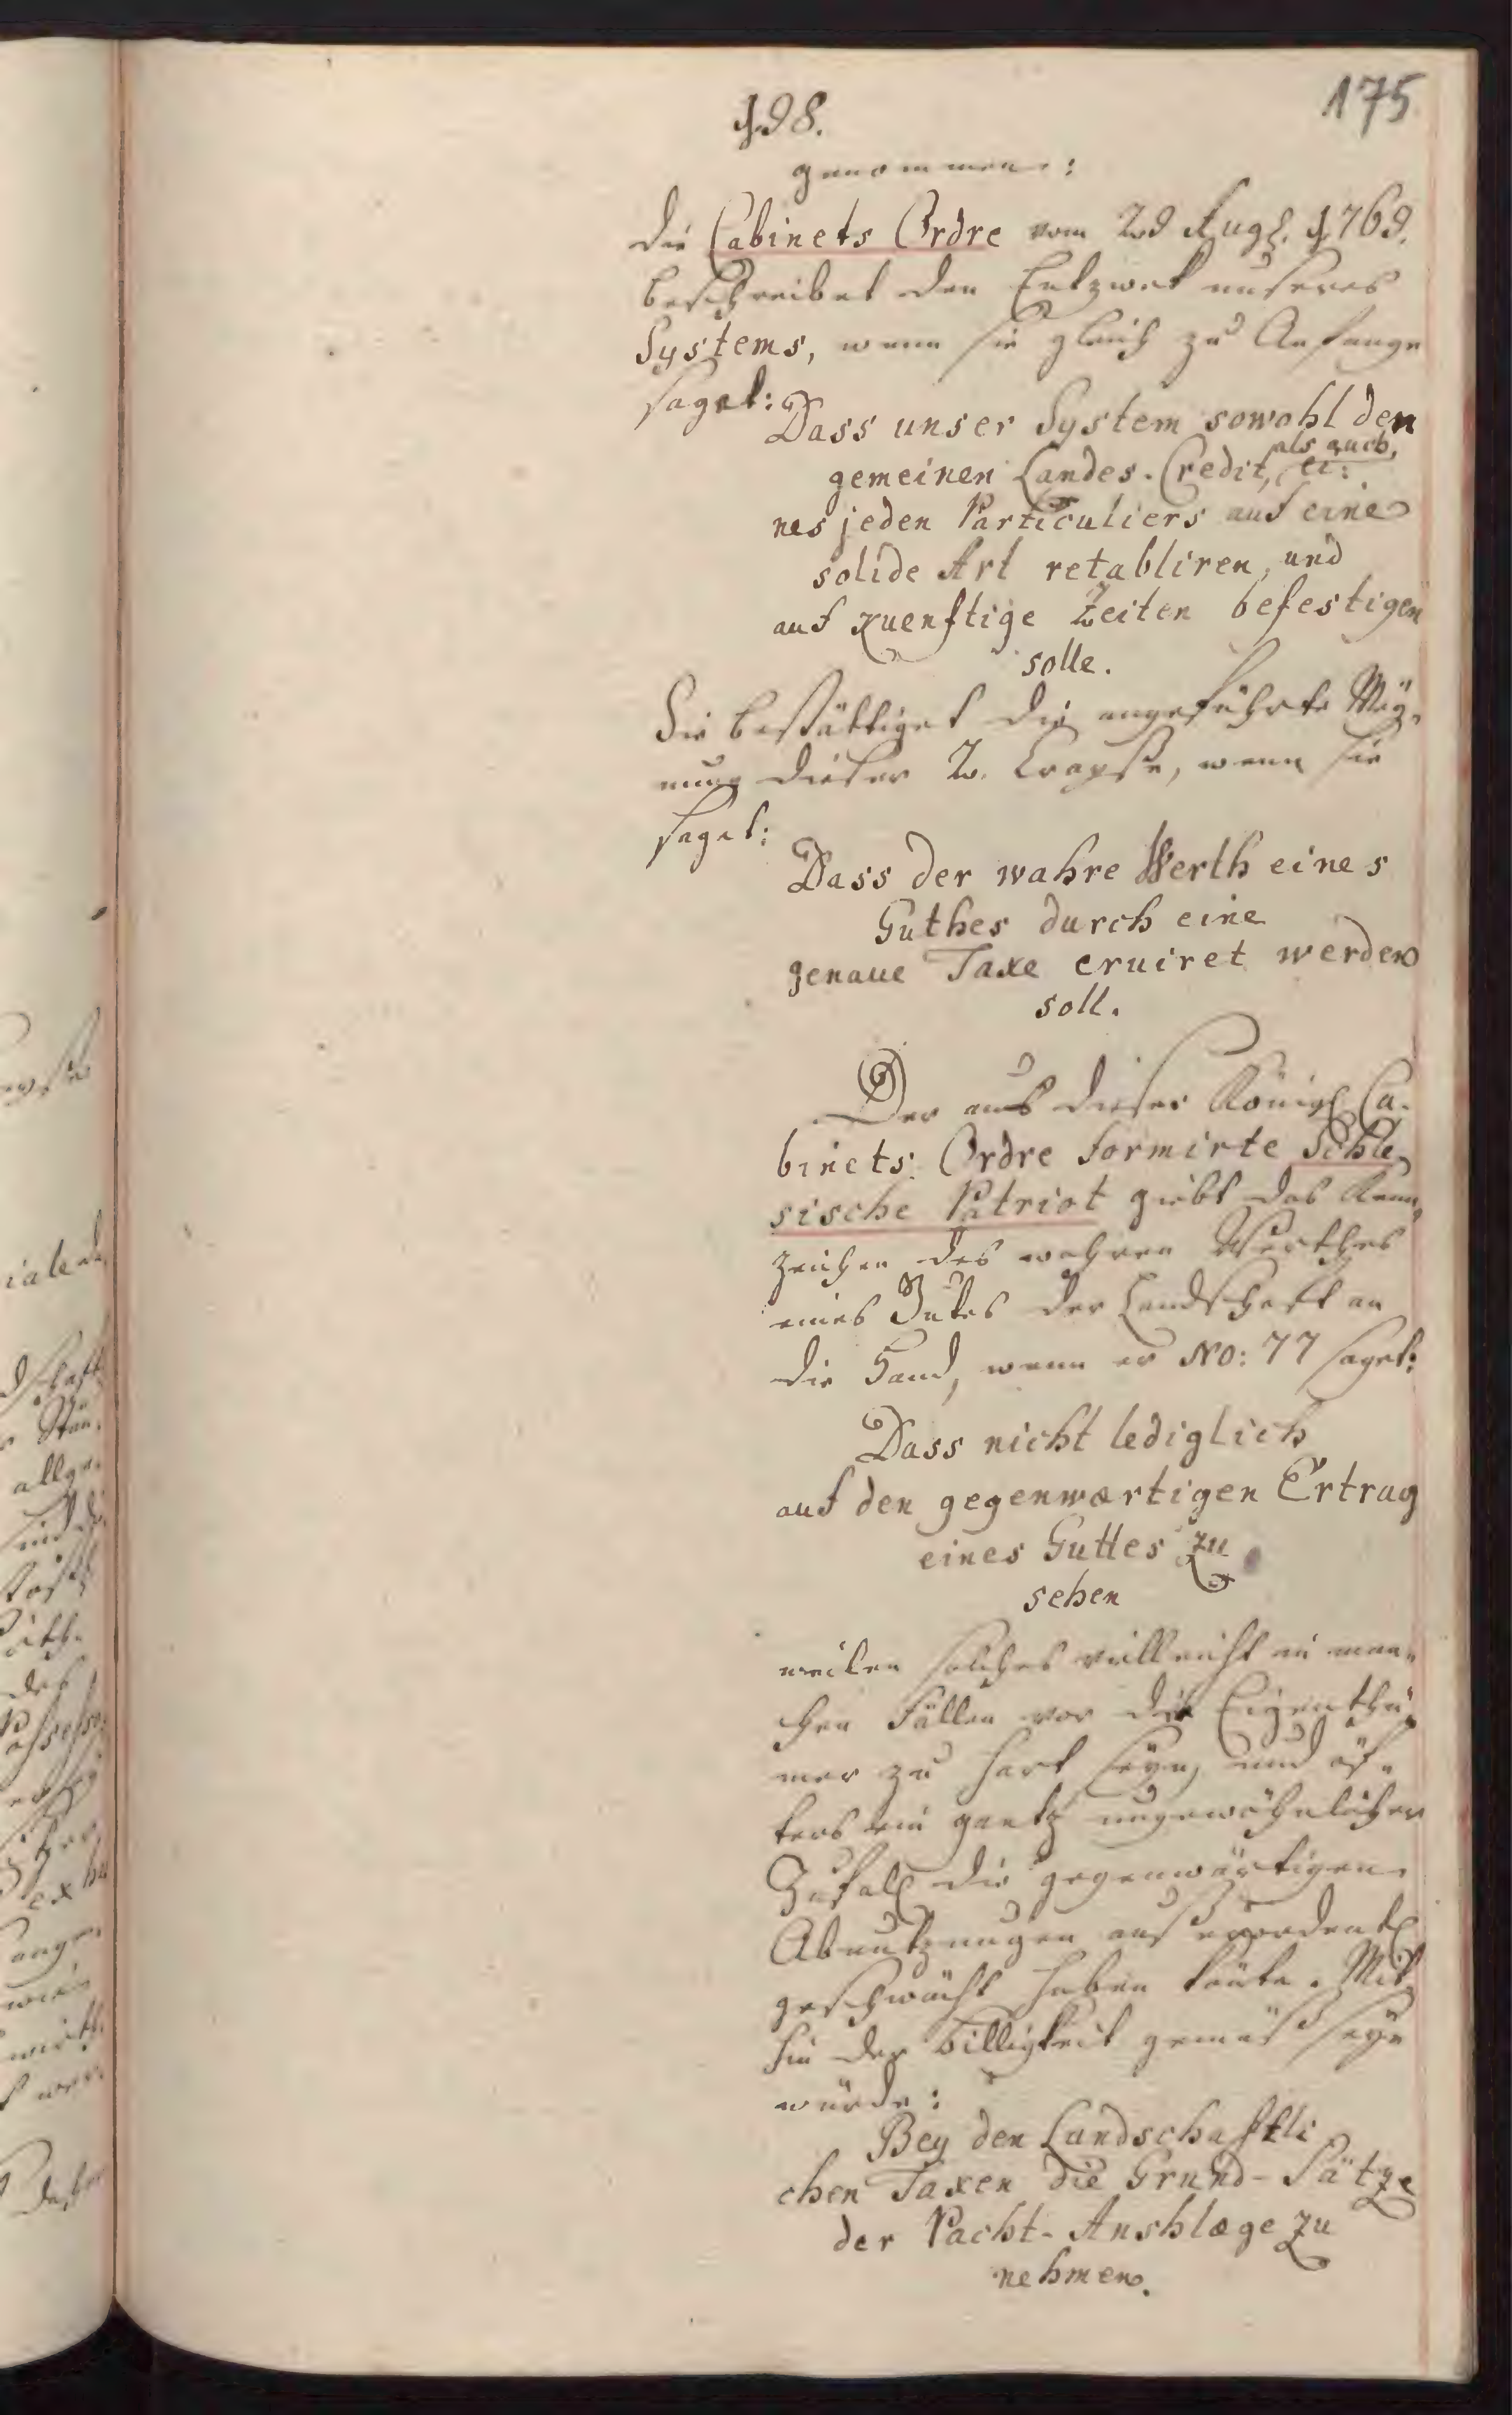 198.
175
genommen:
die Cabinets Ordre vom 29 Aug. 1769.
beschreibet den Entzwek unseres
Systems, wenn sie gleich zu Anfange
saget:
Dass unser System sowohl den
gemeinen Landes-Credit, als auch, ei:
nes jeden Particuliers auf eine
solide Art retabliren, und
auf kuenftige Zeiten befestigen
solle.
Sie bestättiget die angeführte Mey,
nung dieser 2. Crayse, wenn sie
saget:
Dass der wahre Werth eines
Guthes durch eine
genaue Taxe eruiret werden
soll.
Der aus dieser Königl Ca-
binets Ordre formirte Schle,
sische Patriot giebt das Kenn,
zeichen des wahren Werthes
eines Gutes der Landschaft an
die Hand, wenn er No: 77 saget:
Dass nicht lediglich
auf den gegenwærtigen Ertrag
eines Guttes zu
sehen
weilen solches villeicht in man-
chen Fällen vor die Eigenthü,
mer zu hart seyn, und öf-
ters ein gantz ungewöhnlicher
Zufall die gegenwärtigen
Abnutzungen ausserordentl
geschwächt haben könte. Mit
hin der Billigkeit gemäß seyn
würde:
Bey den Landschaftli
chen Taxen die Grund-Sätze
der Pacht-Anshlæge zu
nehmen.